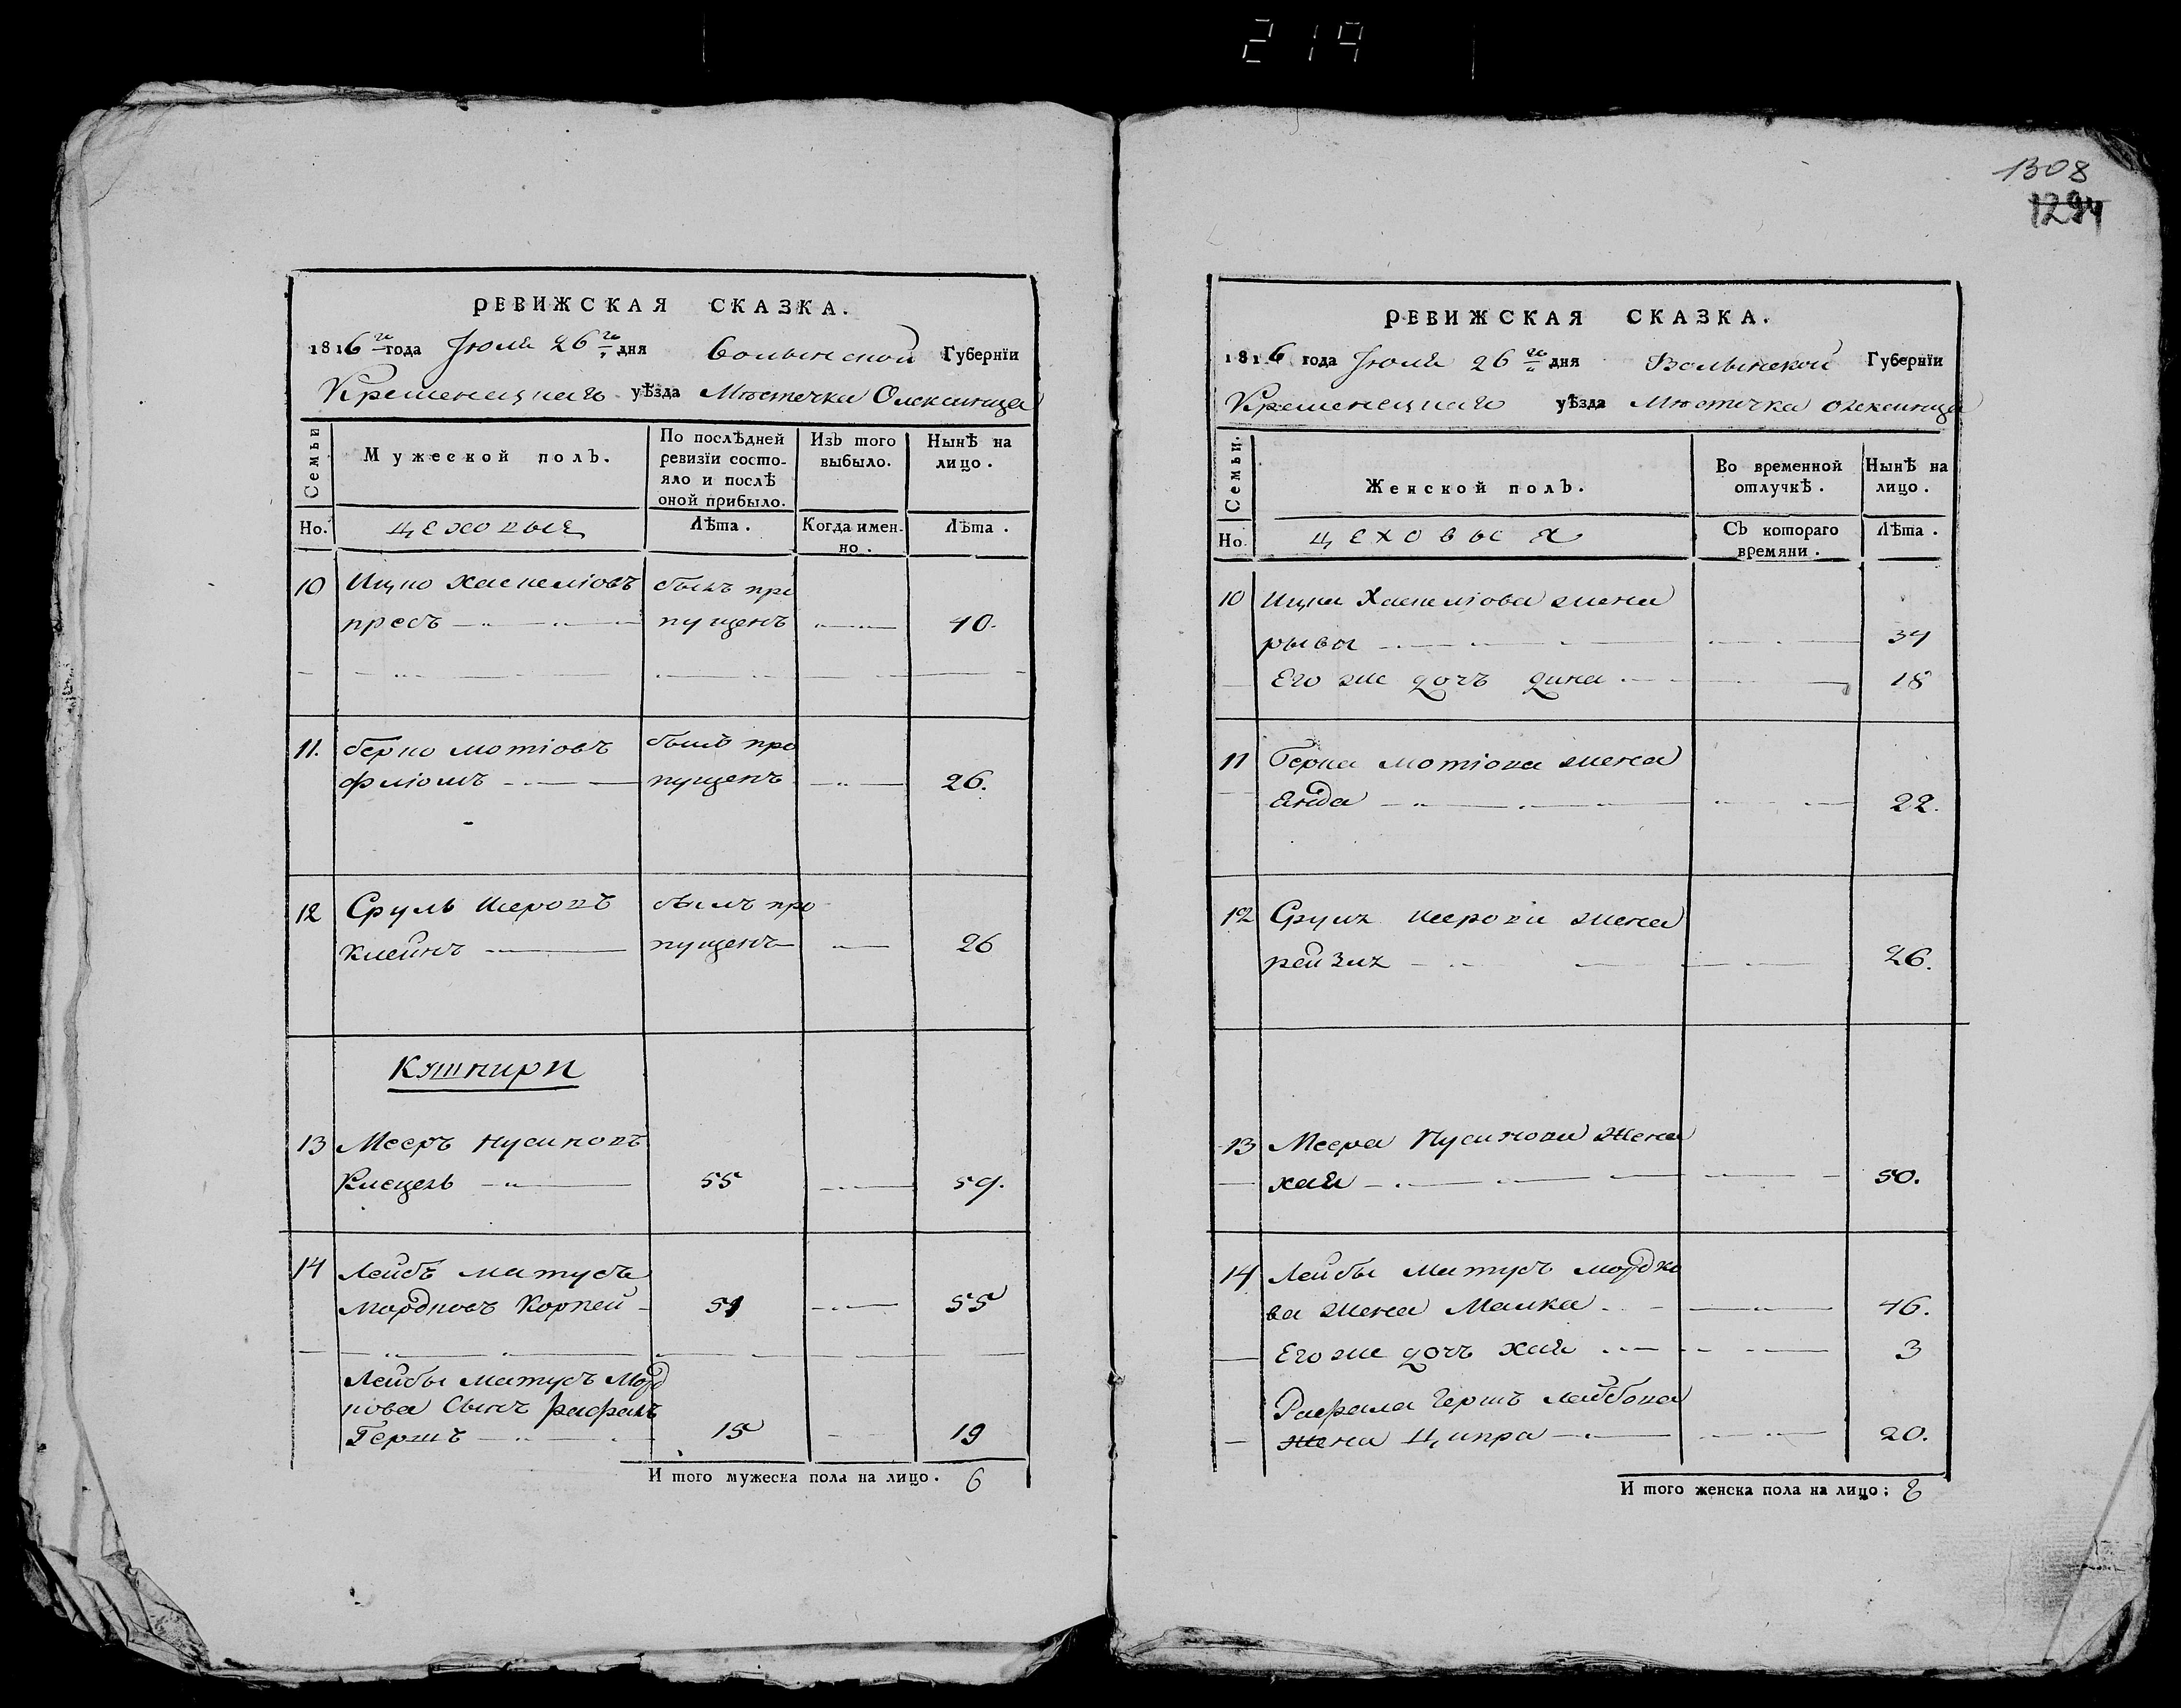 219
1308
1294
РЕВИЖСКАЯ СКАЗКА.
1816го года Июля 26го дня Волынской Губернїи
Кременецкаго уѣзда Мѣстечка Олексинца
Семьи
Мужеской полъ.
По послѣдней ревизїи состояло и послѣ оной прибыло.
Изъ того выбыло.
Нынѣ на лицо.
Но. цеховыя Лѣта. Когда именно. Лѣта.
10 Ицко Хаскелiовъ былъ про
пресъ пущенъ 40.
11. берко мотiовъ былъ про
флiомъ пущенъ 26.
12 Сруль меровъ былъ про
клейнъ пущенъ 26
Кушнири
13 Мееръ Нусиновъ
Клецель 55 59.
14 Лейбъ матусъ
мордковъ Корпей 51 55
Лейбы матусъ Морд
кова Сынъ рафалъ
Гершъ 15 19
И того мужеска пола на лицо. 6
РЕВИЖСКАЯ СКАЗКА.
1816 года Июля 26го дня Волынской Губернїи
Кременецкаго уѣзда Мѣстечка олексинца
Семьи.
Женской полъ.
Во временной отлучкѣ.
Нынѣ на лицо.
Но. цеховыя Съ котораго времяни. Лѣта.
10 Ицка Хаскелiова жена
рывы 34
Его же дочъ дина 18
11 Берка мотiова жена
Енда 22.
12 Сруля мерова жена
рейзля 26.
13 Меера Нусинова Жена
хая 50.
14 Лейбы Матусъ мордко
ва жена Малка 46.
Его же дочъ хая 3
Рафала Гершъ лейбова
Жена Ципра 20.
И того женска пола на лицо; 8